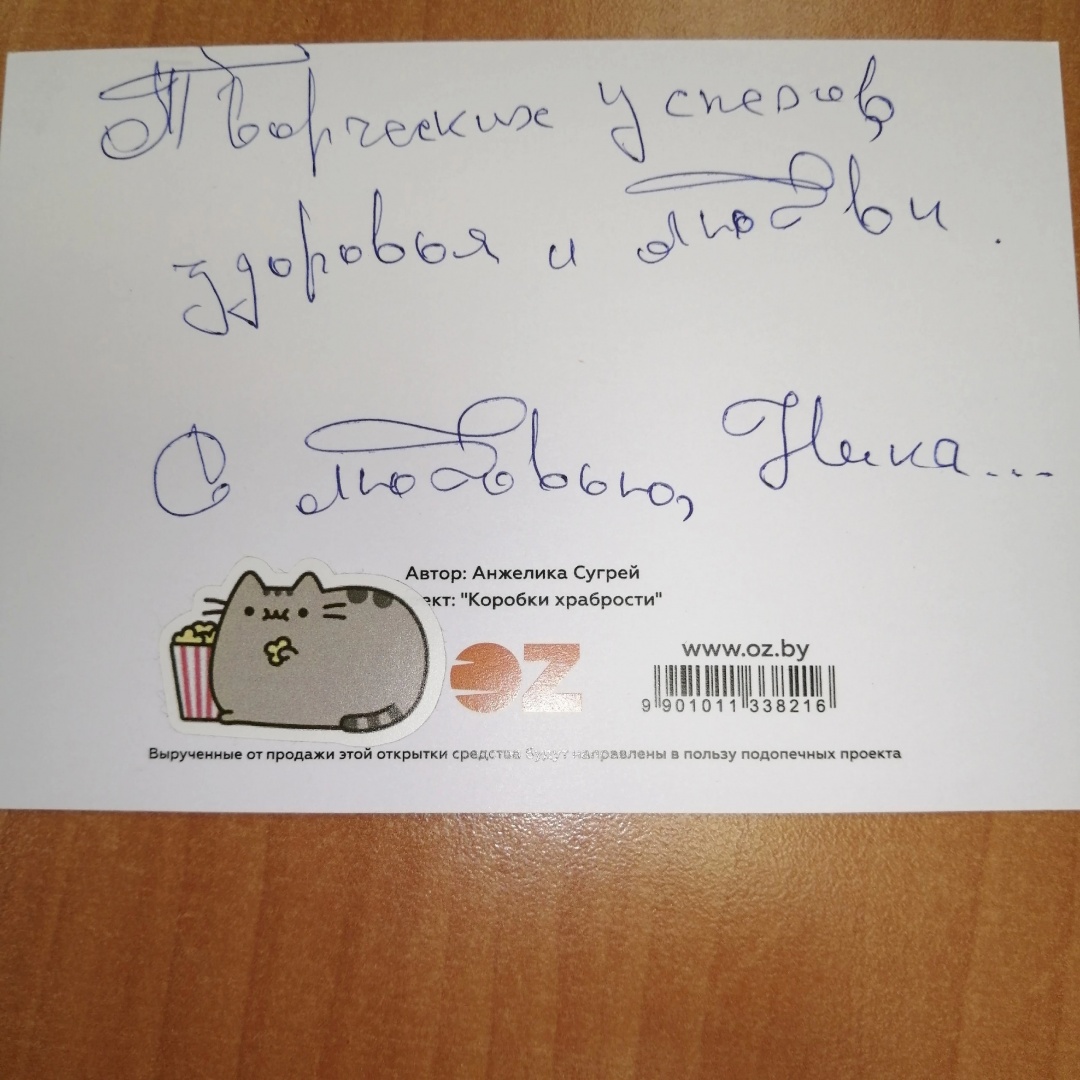 Творческих успехов,
здоровья и любви.
С любовью, Ника...
Автор: Анжелика Сугрей
ект: "Коробки храбрости"
OZ
www.oz.by
9 901011 338216
Вырученные от продажи этой открытки средства будут направлены в пользу подопечных проекта